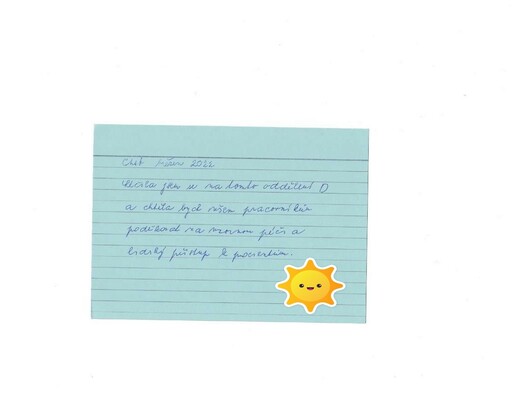 2022
jsem se na tomto oddělení D
a chtěla bych všem pracovníkům
poděkovat za vzornou péči a
lidský přístup k pacientům.